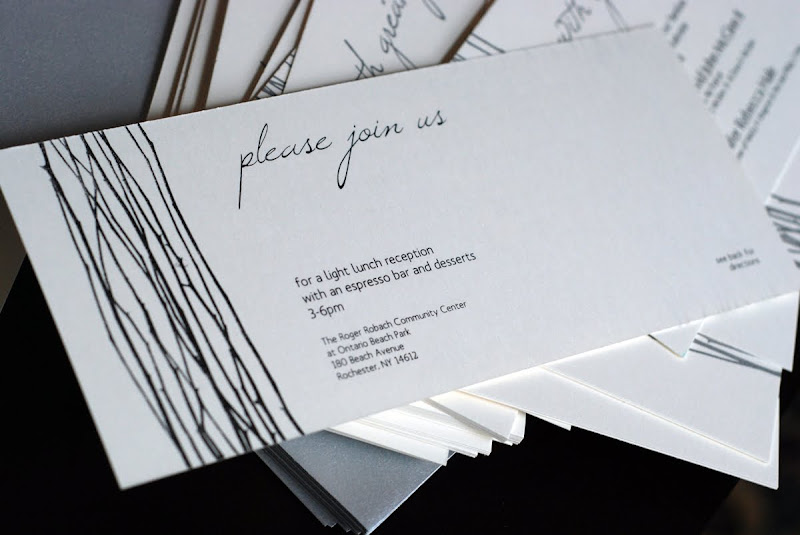 please join us
for a light lunch reception
with an espresso bar and desserts
3-6pm
The Roger Robach Community Center
at Ontario Beach Park
180 Beach Avenue
Rochester, NY 14612
see back for
directions
with great
with